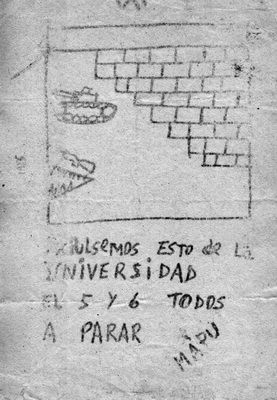 EXPULSEMOS ESTO de LA
UNIVERSIDAD
EL 5 Y 6 TODOS
A PARAR
MAPU